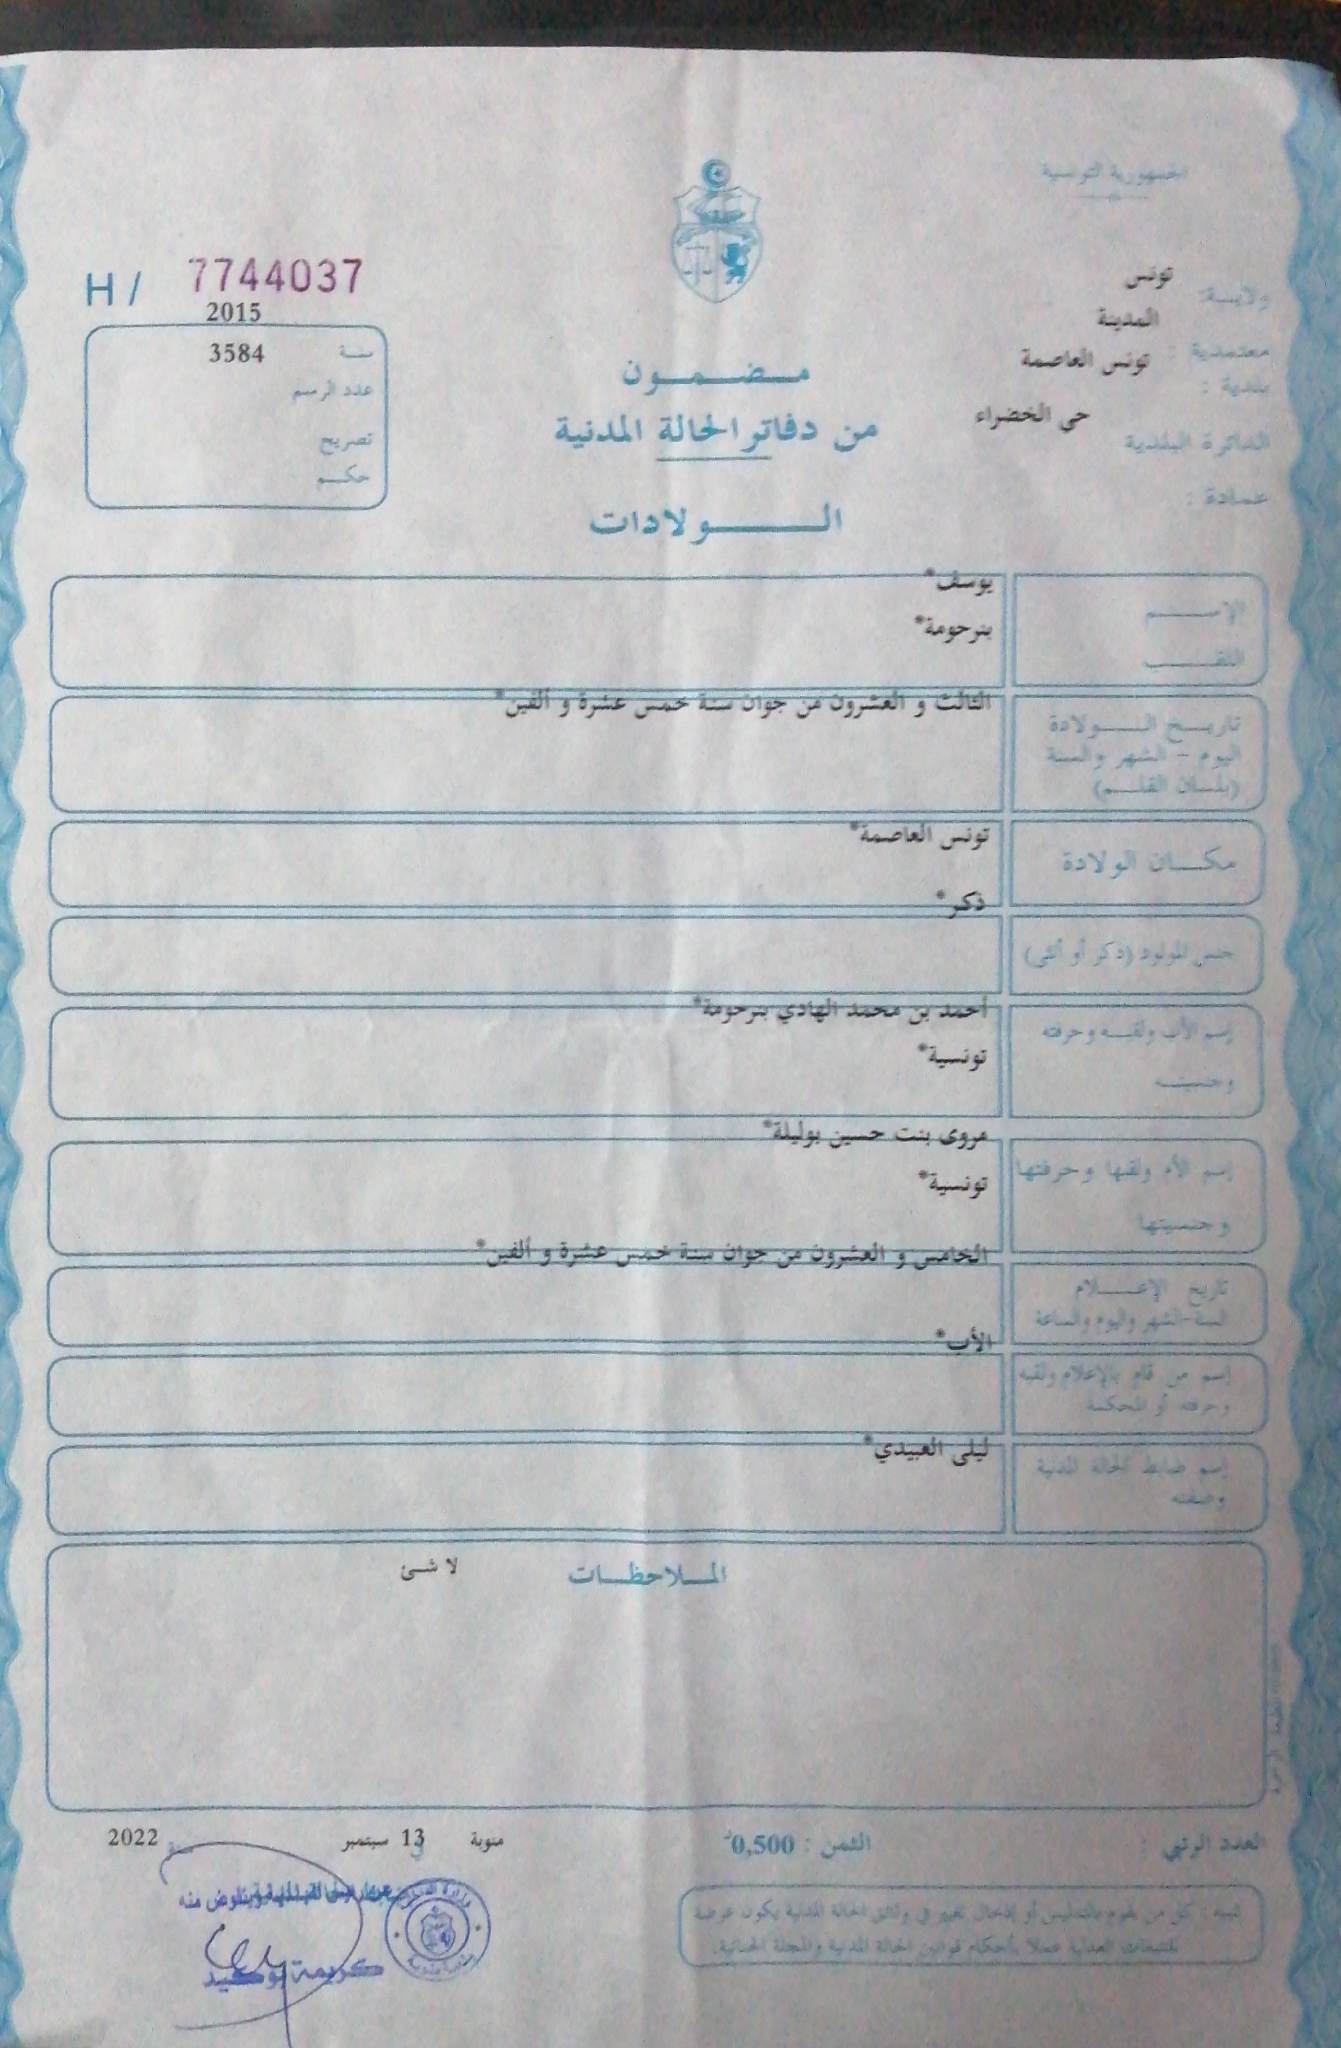 الجمهورية التونسية
H / 7744037
ولاية: تونس
معتمدية : المدينة
بلدية : تونس العاصمة
الدائرة البلدية حي الخضراء
عمادة :
2015
سنة 3584
عدد الرسم
تصريح
حكم
مضمون
من دفاتر الحالة المدنية
الولادات
الإسم يوسف*
اللقب بنرحومة*
تاريخ الولادة الثالث و العشرون من جوان سنة خمس عشرة و ألفين*
اليوم - الشهر والسنة
(بلسان القلم)
مكان الولادة تونس العاصمة*
ذكر*
جنس المولود (ذكر أو أنثى)
أحمد بن محمد الهادي بنرحومة*
إسم الأب ولقبه وحرفته
تونسية*
وجنسيته
مروى بنت حسين بوليلة*
إسم الأم ولقبها وحرفتها
تونسية*
وجنسيتها
الخامس و العشرون من جوان سنة خمس عشرة و ألفين*
تاريخ الإعلام
السنة-الشهر واليوم والساعة
الأب*
إسم من قام بالإعلام ولقبه
وحرفته أو المحكمة
ليلى العبيدي*
إسم ضابط الحالة المدنية
وصفته
الملاحظات لا شئ
العدد الرتبي :
الثمن : 0,500د
منوبة في 13 سبتمبر سنة 2022
تنبيه : كل من يقوم بالتدليس أو إدخال تغيير في وثائق الحالة المدنية يكون عرضة
للتتبعات العدلية عملا بأحكام قوانين الحالة المدنية والمجلة الجنائية.
كريمة بوكيد